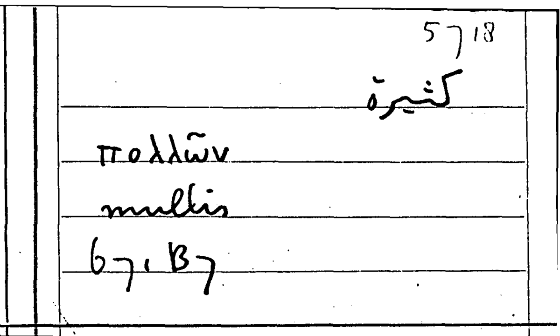 5 ٦ 18
كثيرة
πολλῶν
multis
6٦, B٦